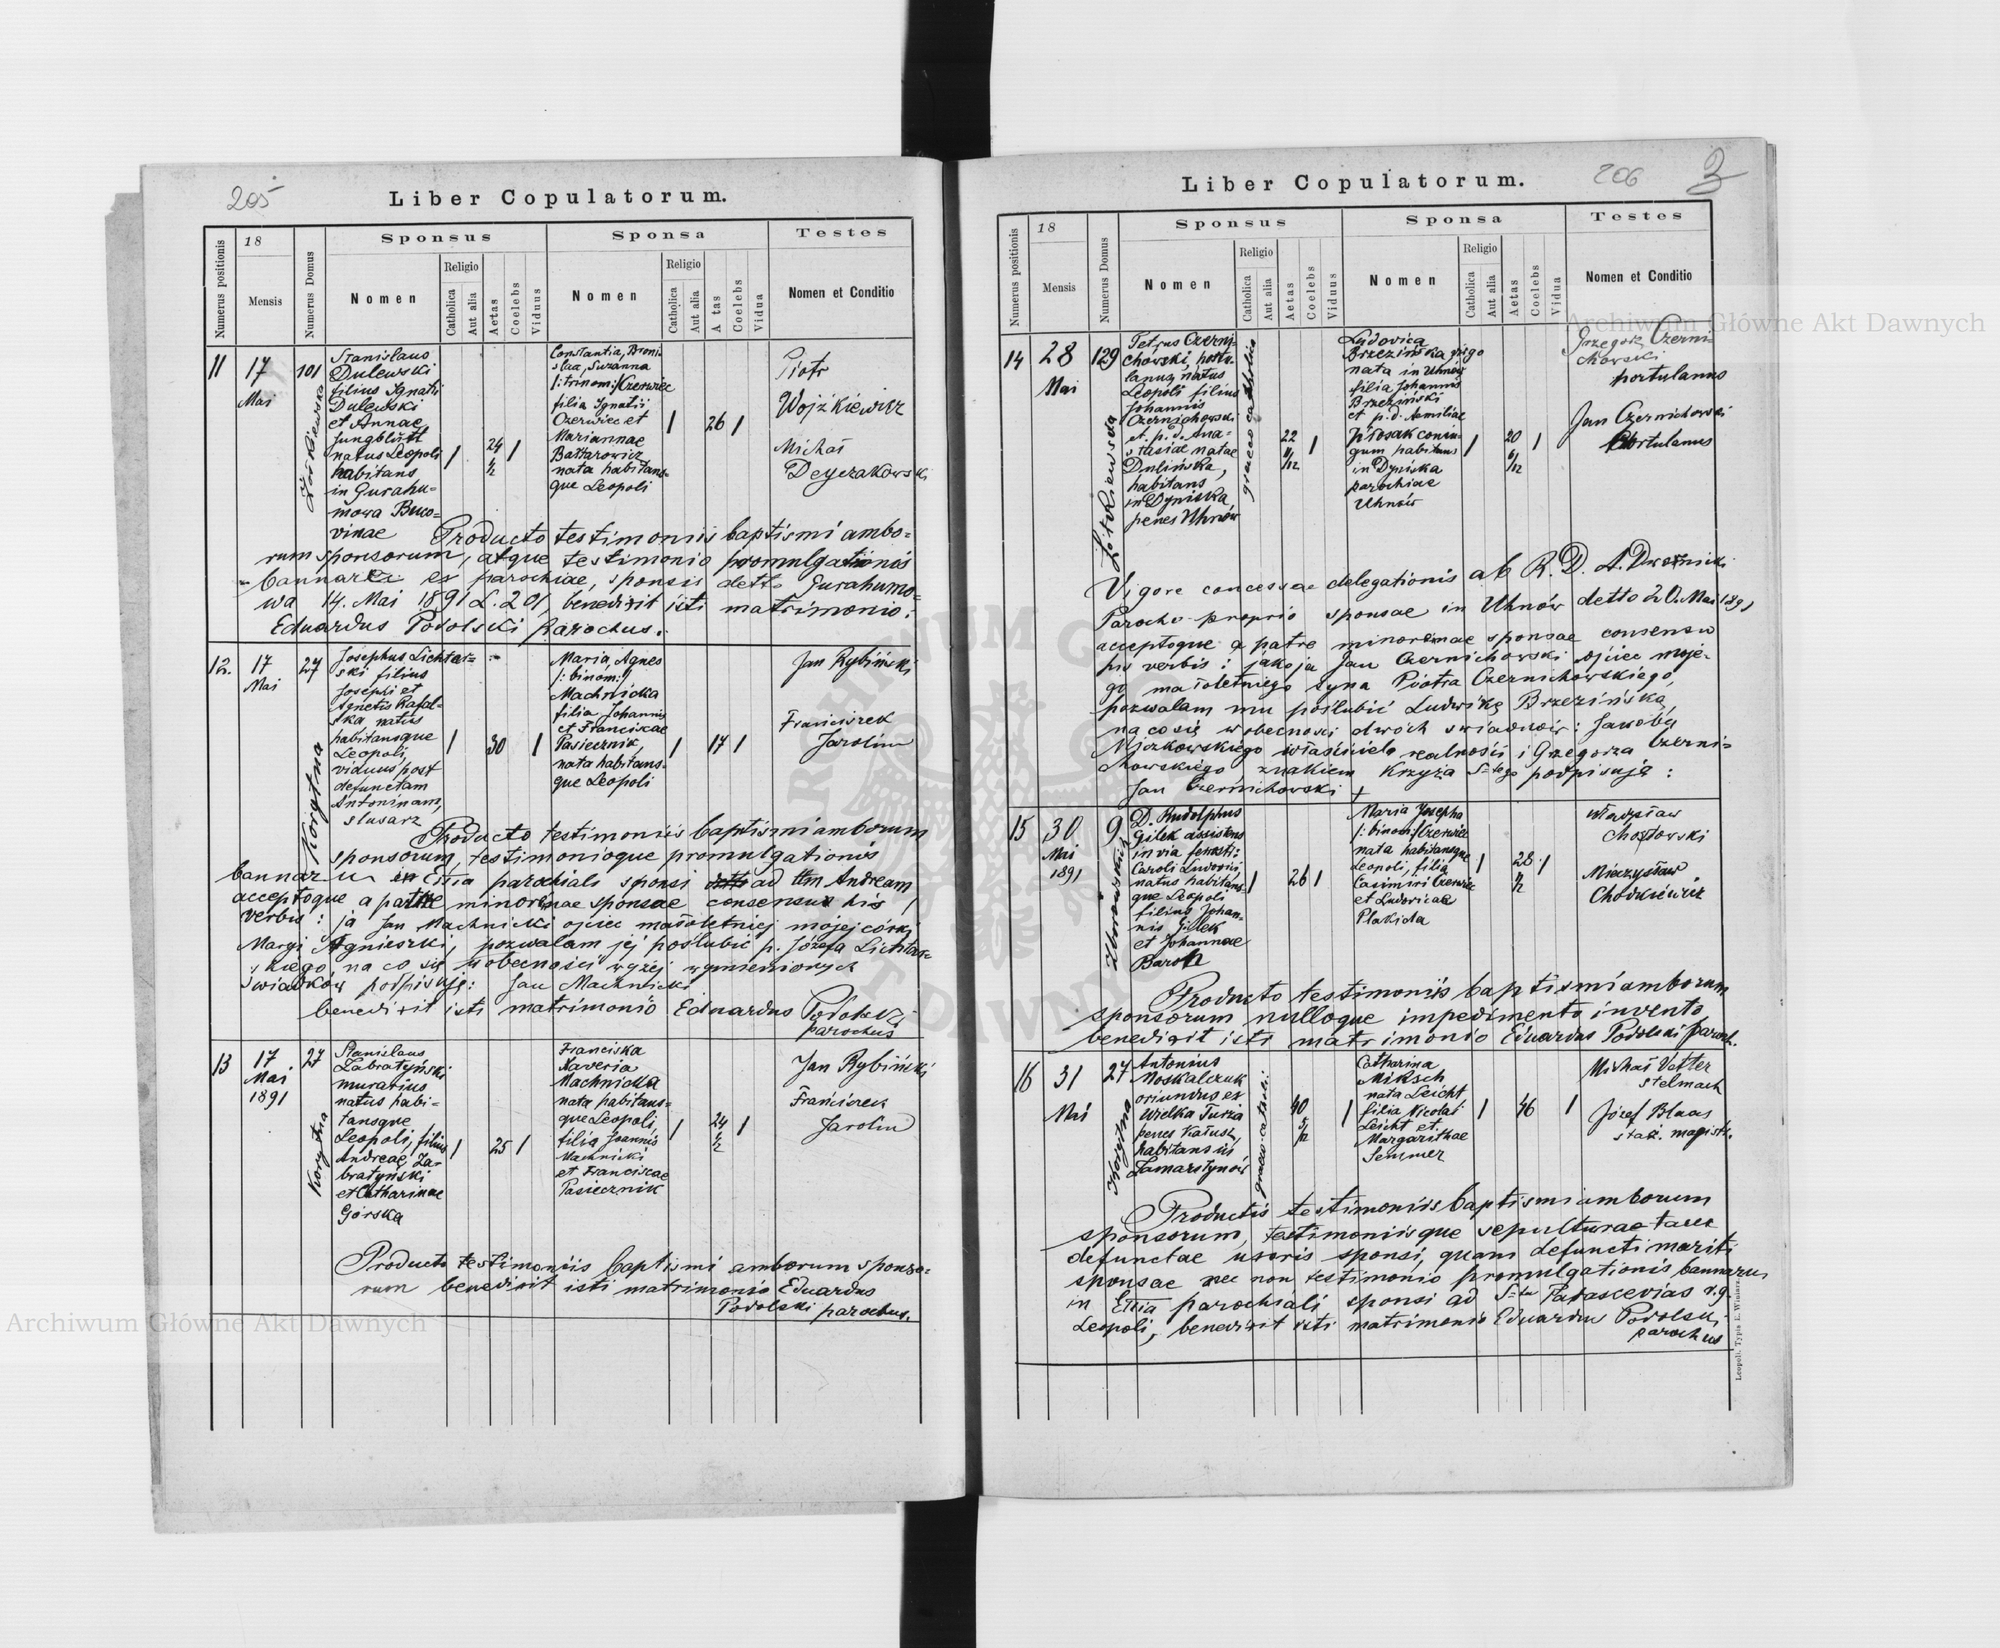 205
Liber Copulatorum.
Numerus positionis
18
Mensis
Numerus Domus
Sponsus
Nomen
Religio
Catholica
Aut alia
Aetas
Coelebs
Viduus
Sponsa
Nomen
Religio
Catholica
Aut alia
A tas
Coelebs
Vidua
Testes
Nomen et Conditio
11
17
Mai
101
Żółkiewska
Stanislaus
Dulewski
filius Ignatii
Dulewski
et Annae
Jungblütt
natus Leopoli
habitans
in Gurahu-
mowa Buco-
vinae
24
1/2
Constantia, Broni-
slaa, Suzanna
/: trinom:/ Czerwiec
filia Ignatii
Czerwiec et
Mariannae
nata habitans-
que Leopoli
26
Piotr
Wojźkiewicz
Michał
Deyczakowski
Producto testimoniis baptismi ambo-
rum sponsorum, atque testimonio promulgationis
bannar ex parochiae, sponsis detto Gurahumo-
wa 14. Mai 1891 L. 201, benedixit isti matrimonio:
Eduardus Podolski parochus.
12.
17
Mai
27
Korytna
Josephus Lichtar-
ski filius
Josephi et
Agnetis Rafal-
ska natus
habitansque
Leopoli,
viduus post
defunctam
Antoninam,
slusarz
30
Maria, Agnes
/: binom:/
Machnicka
filia Johannis
et Franciscae
Pasiecznik,
nata habitans-
que Leopoli
17
Jan Rybiński
Franciszek
Jarolim
Producto testimoniis baptismi amborum
sponsorum, testimonioque promulgationis
bannar in Eccia parochiali sponsi ad Andream
acceptoque a patre minorennae sponsae consensu his
verbis: ja Jan Machnicki ojciec małoletniej mojej córki
Maryi Agnieszki, pozwalam jej poślubić p. Józefa Lichtar-
skiego, na co się w obecności wyżej wymienionych
świadków podpisuję: Jan Machnicki
benedixit isti matrimonio Eduardus Podolski
parochus
13
17
Mai
1891
27
Korytna
Stanislaus
Zabratyński
murarius
natus habi-
tansque
Leopoli, filius
Andreae Za-
bratyński
et Catharinae
Górska
25
Franciska
Xaveria
Machnicka
nata habitans-
que Leopoli,
filia Joannis
Machnicki
et Franciscae
Pasiecznik
24
1/2
Jan Rybiński
Franciszek
Jarolim
Producto testimoniis baptismi amborum sponso-
rum benedixit isti matrimonio Eduardus
Podolski parochus.
206
3
Liber Copulatorum.
Numerus positionis
18
Mensis
Numerus Domus
Sponsus
Nomen
Religio
Catholica
Aut alia
Aetas
Coelebs
Viduus
Sponsa
Nomen
Religio
Catholica
Aut alia
Aetas
Coelebs
Vidua
Testes
Nomen et Conditio
14
28
Mai
129
Żółkiewska
Petrus Czerni-
chowski, portu-
lanus, natus
Leopoli filius
Johannis
Czernichowski
et p. d. Ana-
stasiae natae
Dulińska,
habitans
in Dyniska
penes Uhnów
graeco catholic
22
Ludovica
Brzezińska
nata in Uhnów
filia Johannis
Brzeziński
et p. d. Aemiliae
Piłosak coniu-
gum habitans
in Dyniska
parochiae
Uhnów
20
6/12
Grzegorz Czerni-
chowski
portulanus
Jan Czernichowski
Portulanus
Vigore concessae delegationis ab R. D. A. Dworznicki
Parocho proprio sponsae in Uhnów detto 20. Mai 1891
acceptoque a patre minorennae sponsae consensu
his verbis: jako ja Jan Czernichowski ojciec moje-
go małoletniego syna Piotra Czernichowskiego,
pozwalam mu poślubić Ludwikę Brzezińską,
na co się w obecności dwóch świadków: Jakoba
właściciela realności i Grzegorza Czerni-
chowskiego znakiem Krzyża S-tego podpisuję:
Jan Czernichowski +
15
30
Mai
1891
9
Zborowskich
D. Rudolphus
Gilek assistens
in via ferrati:
Caroli Ludovici,
natus habitans-
que Leopoli
filius Johan-
nis Gilek
et Johannae
Baron
26
Maria Josepha
/: binom:/ Czerwiec
nata habitansque
Leopoli, filia
Casimiri Czerwiec
et Ludovicae
Plakida
28
1/2
Władysław
Mieczysław
Chodkiewicz
Producto testimoniis baptismi amborum
sponsorum nulloque impedimento invento
benedixit isti matrimonio Eduardus Podolski paroch.
16
31
Mai
27
Korytna
Antonius
Moskalczuk
oriundus ex
Wielka Turza
penes Kałusz,
habitans in
Zamarstynów
graeco-catholi:
40
Catharina
Miksch
nata Leicht
filia Nicolai
Leicht et
Margarithae
Semmer
46
Michał Vetter
stelmach
Józef Blaas
Productis testimoniis baptismi amborum
sponsorum, testimoniisque sepulturae
defunctae uxoris sponsi, quam defuncti mariti
sponsae nec non testimonio promulgationis bannarum
in Eccia parochiali sponsi ad S-tae Parascevias r.g.
Leopoli, benedixit isti matrimonio Eduardus Podolski
parochus
Leopoli. Typis E. Winiarz
Archiwum Główne Akt Dawnych
Archiwum Główne Akt Dawnych